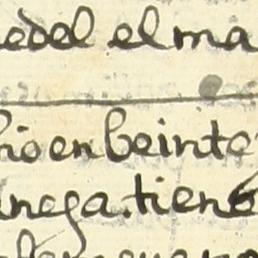 edel el ma
hio en beinte
anega. tiene